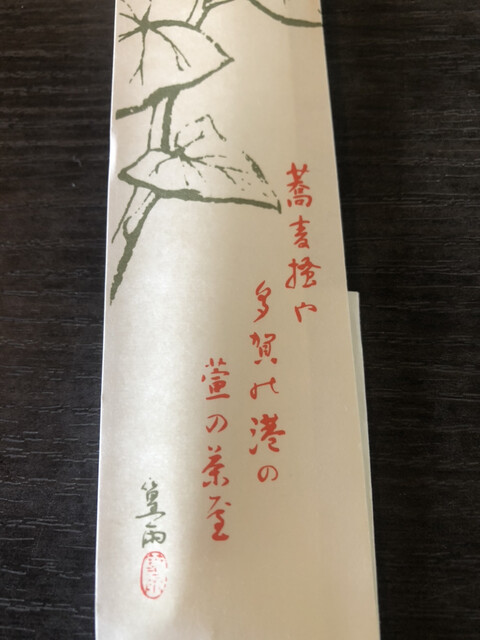 蕎麦掻や
多賀の港の
萱の茶屋